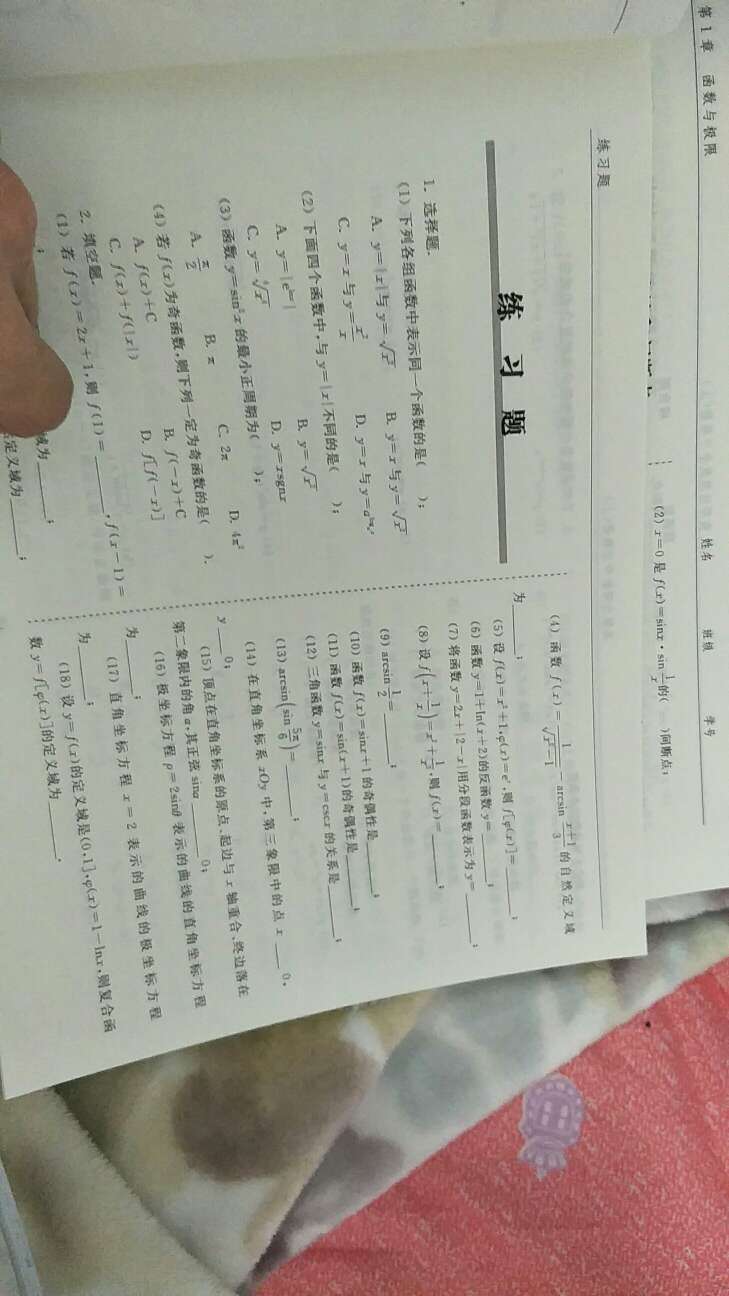 第1章 函数与极限
姓名 班级 学号
(2) x=0 是 f(x)=sinx·sin 1/x 的( )间断点;
练习题
练 习 题
1. 选择题.
(1) 下列各组函数中表示同一个函数的是( );
A. y=|x|与y=√x² B. y=x与y=√x²
C. y=x与y=x²/x D. y=x与
(2) 下面四个函数中,与 y=|x|不同的是( );
A. B. y=√x²
C. y=⁴√x⁴ D. y=xsgnx
(3) 函数 y=sin²x 的最小正周期为( );
A. π/2 B. π C. 2π D. 4π²
(4) 若 f(x)为奇函数,则下列一定为奇函数的是( ).
A. f(x)+C B. f(-x)+C
C. f(x)+f(|x|) D. f[f(-x)]
2. 填空题.
(1) 若 f(x)=2x+1,则 f(1)=____,f(x-1)=
;
域为____;
定义域为____;
(4) 函数 f(x)=1/√(x²-1) - arcsin (x+1)/3 的自然定义域
为____;
(5) 设 f(x)=x²+1,φ(x)=eˣ,则 f[φ(x)]=____;
(6) 函数 y=1+ln(x+2)的反函数 y=____;
(7) 将函数 y=2x+|2-x|用分段函数表示为 y=____;
(8) 设 f(x+1/x)=x²+1/x²,则 f(x)=____;
(9) arcsin 1/2=____;
(10) 函数 f(x)=sinx+1 的奇偶性是____;
(11) 函数 f(x)=sin(x+1)的奇偶性是____;
(12) 三角函数 y=sinx 与 y=cscx 的关系是____;
(13) arcsin(sin 5π/6)=____;
(14) 在直角坐标系 xOy 中,第三象限中的点 x ____ 0,
y ____ 0;
(15) 顶点在直角坐标系的原点、起边与 x 轴重合、终边落在
第二象限内的角 α,其正弦 sinα ____ 0;
(16) 极坐标方程 ρ=2sinθ 表示的曲线的直角坐标方程
为____;
(17) 直角坐标方程 x=2 表示的曲线的极坐标方程
为____;
(18) 设 y=f(x)的定义域是(0,1],φ(x)=1-lnx,则复合函
数 y=f[φ(x)]的定义域为____.